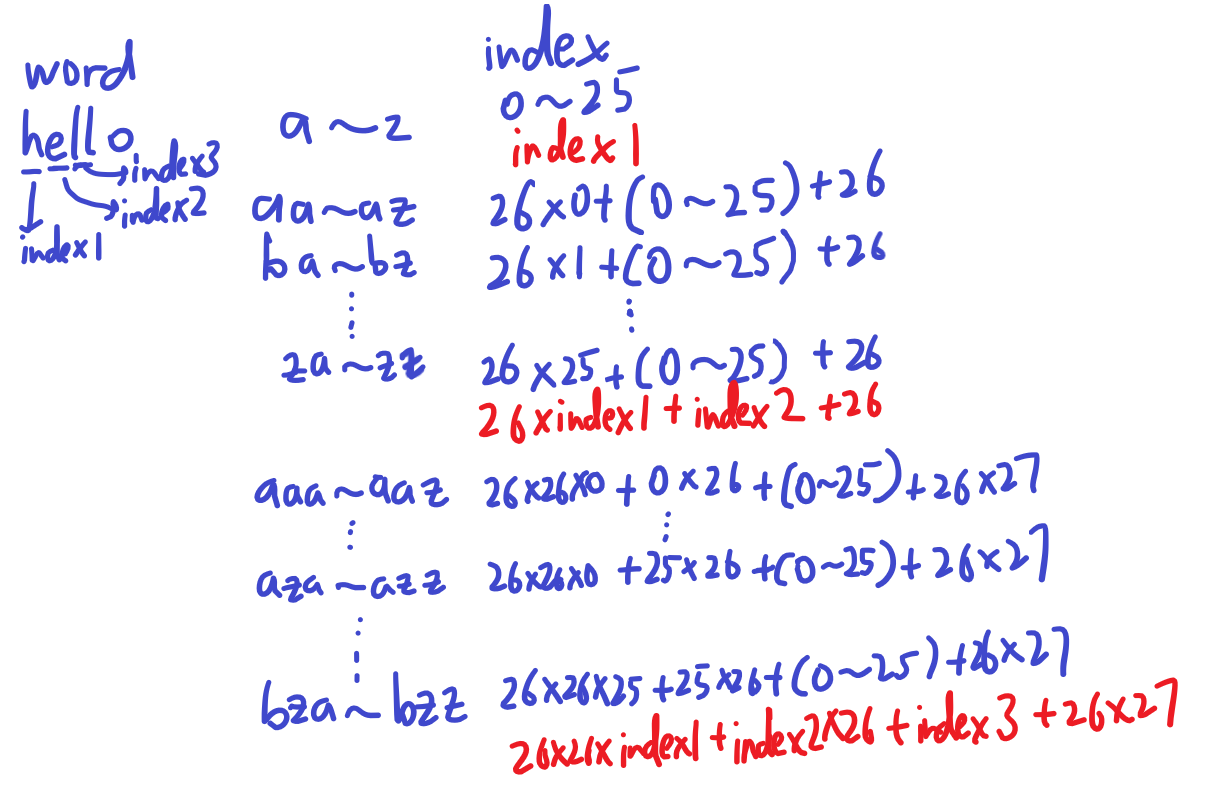 word
hello
index3
index2
index1
index
a ~ z
0 ~ 25
index1
aa ~ az 26×0+(0 ~ 25) +26
ba ~ bz 26×1+(0 ~ 25) +26
za ~ zz 26×25+(0 ~ 25) +26
26×index1 + index2 +26
aaa ~ aaz 26×26×0 + 0×26 +(0~25)+26×27
aza ~ azz 26×26×0 +25×26 +(0~25)+26×27
bza ~ bzz 26×26×25 +25×26+(0~25)+26×27
26×26×index1+index2×26+index3+26×27